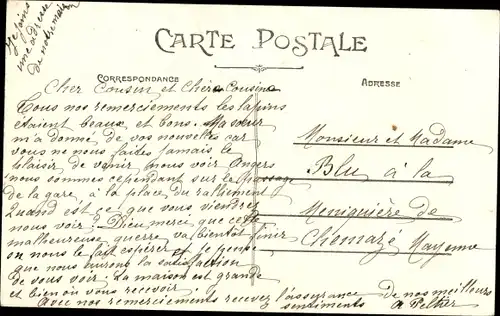 Je joins
une adresse
de notre maison
CARTE POSTALE
CORRESPONDANCE
ADRESSE
Cher Cousin et Chère Cousine
Tous nos remerciements les lapins
étaient beaux et bons. Ma sœur
m'a donné de vos nouvelles car
vous ne nous faites jamais le
plaisir de venir nous voir Angers
nous sommes cependant sur le passage
de la gare à la place du ralliement
Quand est ce que vous viendrez
nous voir? Dieu merci que cette
malheureuse guerre va bientôt finir
on nous le fait espérer et je pense
que nous aurons la satisfaction
de vous voir. La maison est grande
et bien où vous recevoir
avec nos remerciements recevez l'assurance de nos meilleurs
sentiments
A Pelher
Monsieur et Madame
Blu à la
Meniguière de
Chemazé Mayenne